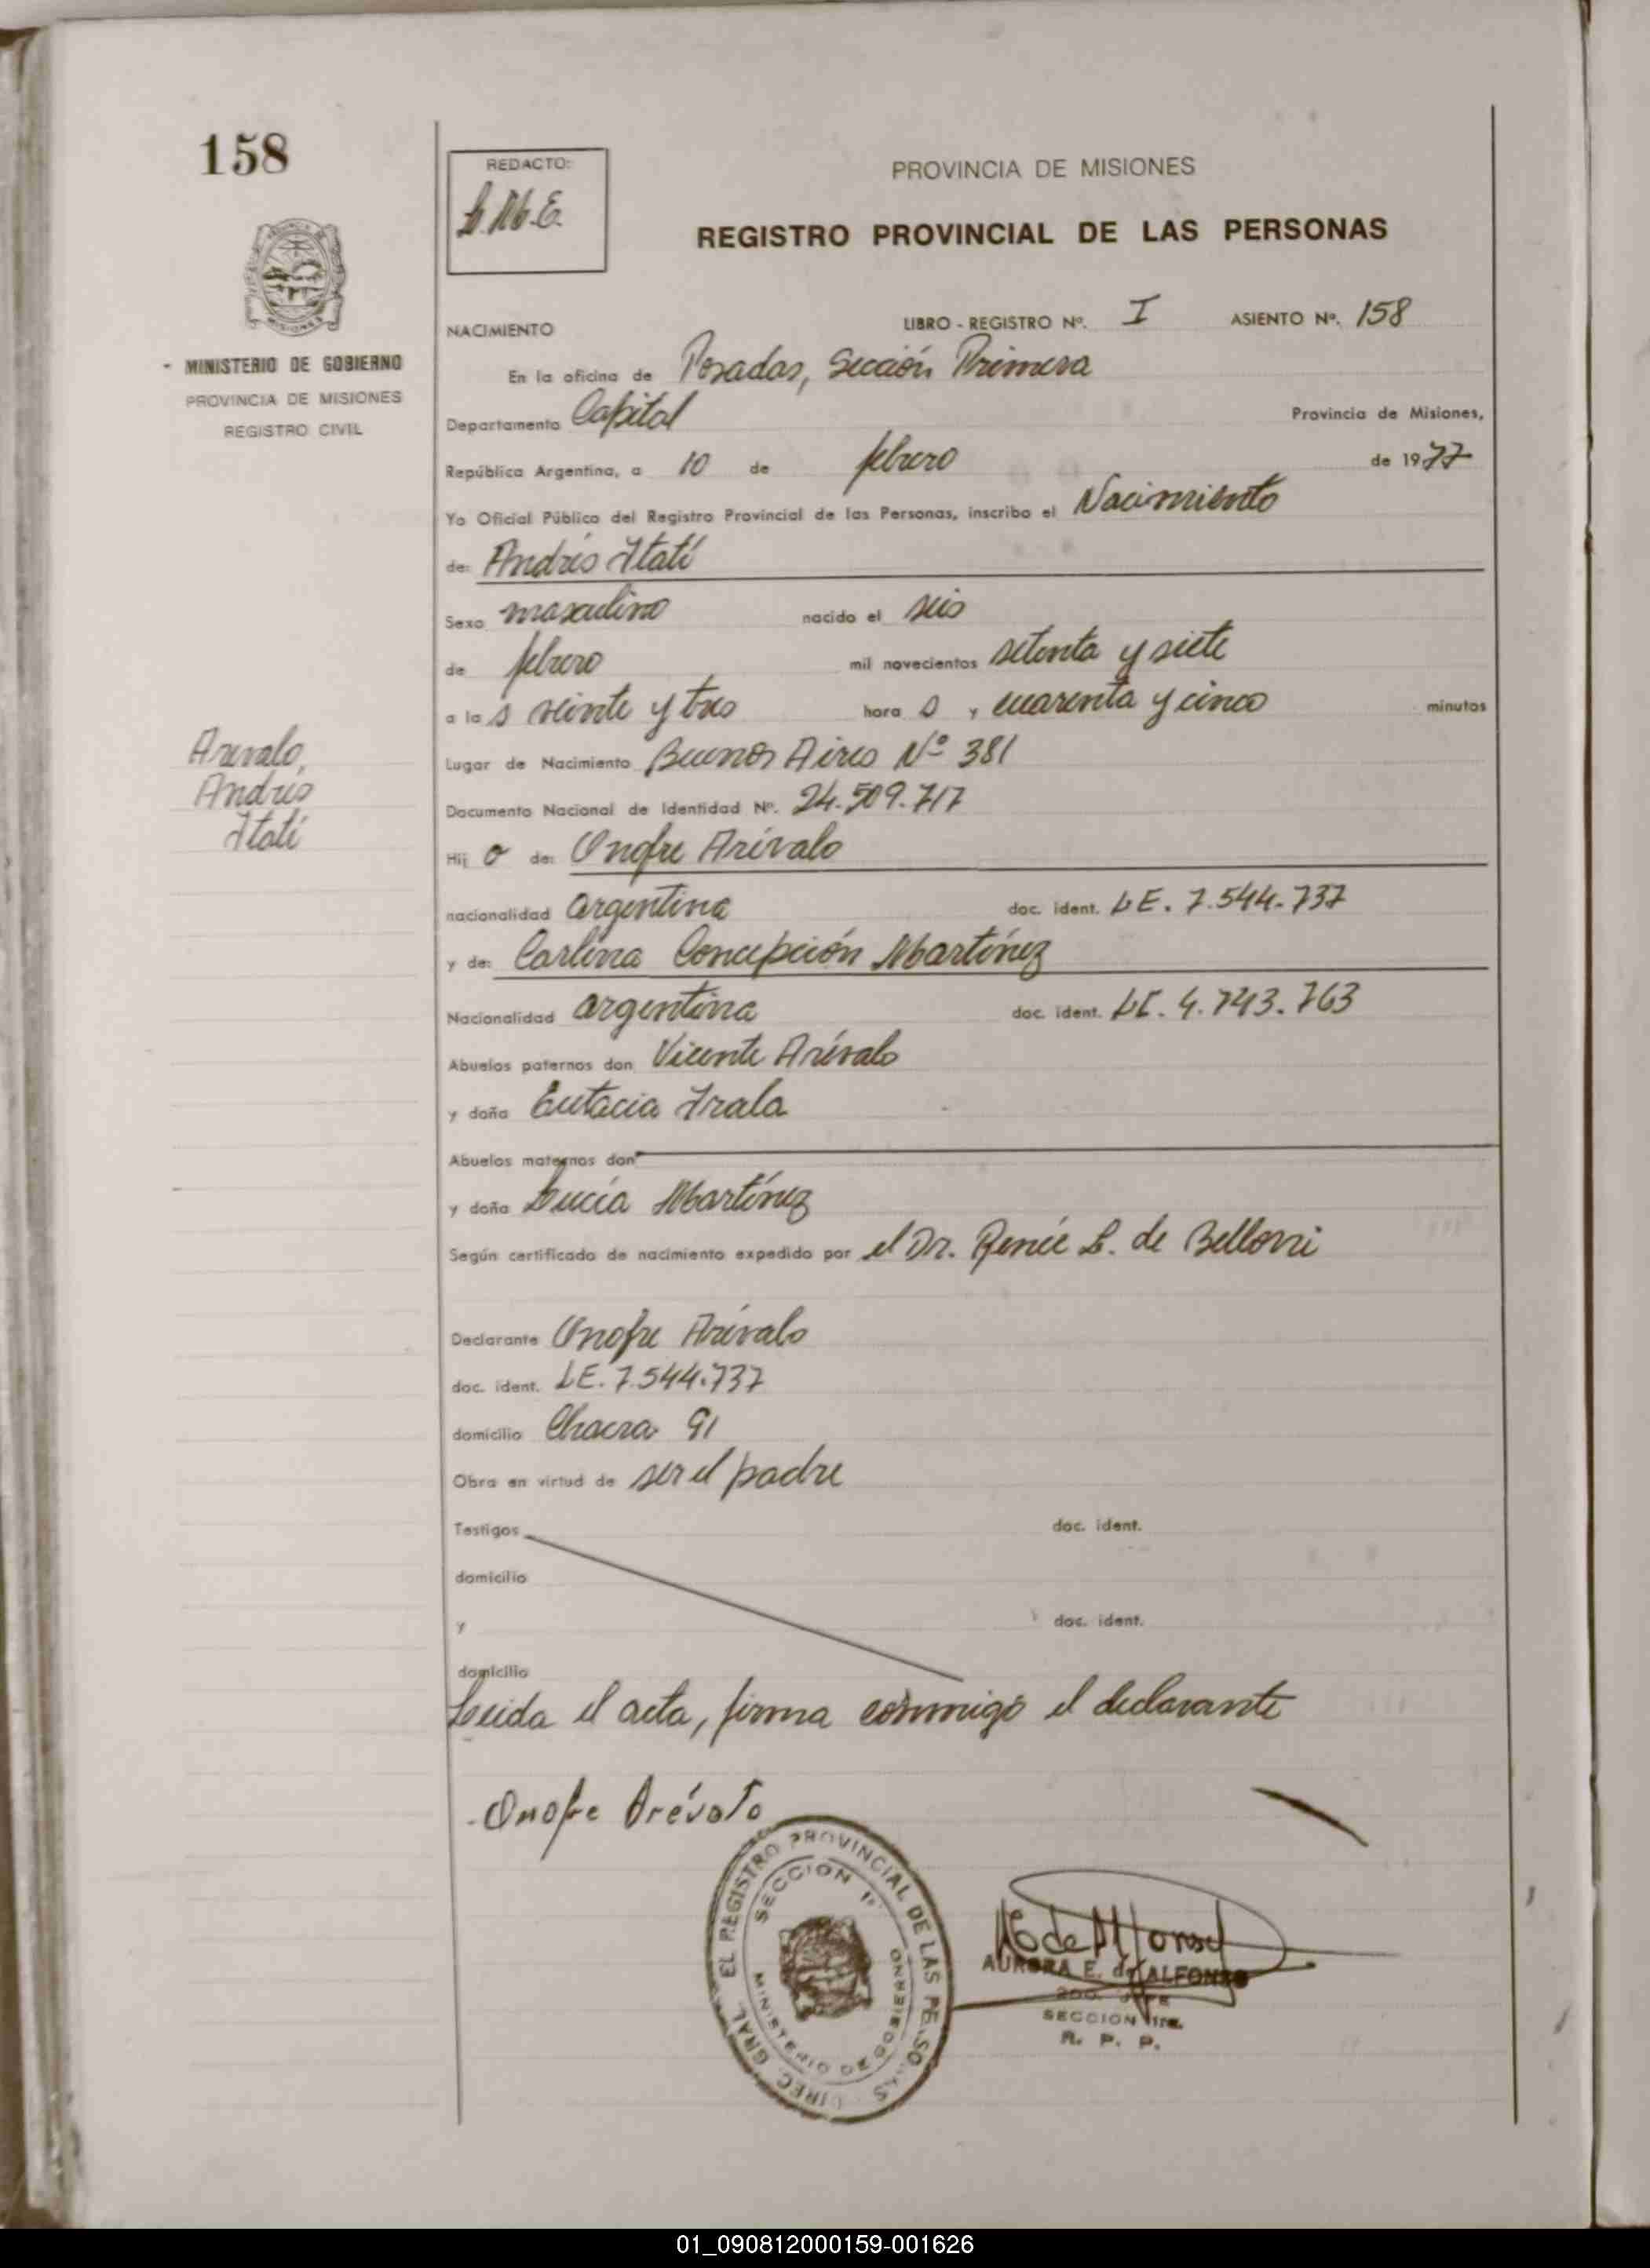 158
MINISTERIO DE GOBIERNO
PROVINCIA DE MISIONES
REGISTRO CIVIL
Arevalo,
Andrés
Itatí
REDACTO:
PROVINCIA DE MISIONES
REGISTRO PROVINCIAL DE LAS PERSONAS
NACIMIENTO LIBRO - REGISTRO Nº. I ASIENTO Nº. 158
En la oficina de Posadas, Sección Primera
Departamento Capital Provincia de Misiones,
República Argentina, a 10 de febrero de 1977
Yo Oficial Público del Registro Provincial de las Personas, inscribo el Nacimiento
de: Andrés Itatí
Sexo masculino nacido el seis
de febrero mil novecientos setenta y siete
a las veinte y tres horas y cuarenta y cinco minutos
Lugar de Nacimiento Buenos Aires Nº 381
Documento Nacional de Identidad Nº. 24.509.717
Hijo de: Onofre Arévalo
nacionalidad argentina doc. ident. LE. 7.544.737
y de: Carlina Concepción Martínez
Nacionalidad argentina doc. ident. LC. 4.743.763
Abuelos paternos don Vicente Arévalo
y doña Eutacia Irala
Abuelos maternos don
y doña Lucía Martínez
Según certificado de nacimiento expedido por el Dr. Renée L. de Belloni
Declarante Onofre Arévalo
doc. ident. LE. 7.544.737
domicilio Chacra 91
Obra en virtud de ser el padre
Testigos doc. ident.
domicilio
y doc. ident.
domicilio
Leida el acta, firma conmigo el declarante
Onofre Arévalo
DIREC. GRAL. EL REGISTRO PROVINCIAL DE LAS PERSONAS
SECCION 1ª
MINISTERIO DE GOBIERNO
AURORA E. de ALFONZO
2DO. JEFE
SECCION 1ra.
R. P. P.
01_090812000159-001626